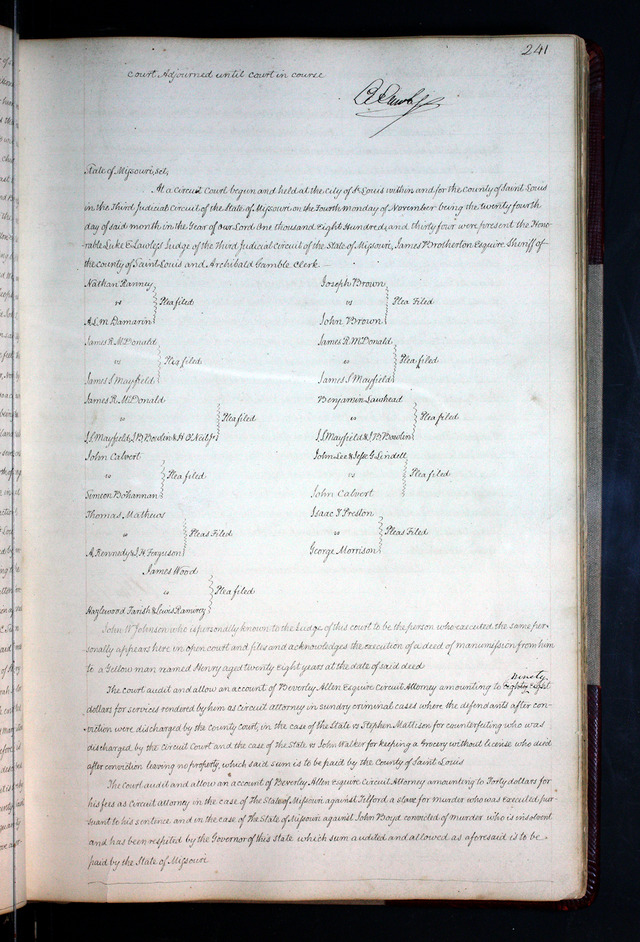 241
Court Adjourned until Court in course
State of Missouri, sct,
At a Circuit Court begun and held at the City of St Louis within and for the County of Saint Louis
in the Third Judicial Circuit of the State of Missouri on the Fourth monday of November being the twenty fourth
day of said month in the Year of our Lord One thousand Eight Hundred, and thirty four were present the Hono-
rable Luke E Lawless Judge of the Third Judicial Circuit of the State of Missouri, James Brotherton Esquire Sheriff of
the County of Saint Louis and Archibald Gamble Clerk —
Nathan Ranney
vs } Plea filed
A L M Damarin
Joseph Brown
vs } Plea Filed
John Brown
James R McDonald
vs } Plea filed
James S Mayfield
James R McDonald
vs } Plea filed
James S Mayfield
James R McDonald
vs } Plea filed
J S Mayfield, J B Bowlin &
Benjamin Lawhead
vs } Plea filed
J S Mayfield & J B Bowlin
John Calvert
vs } Plea filed
Simeon Bohannan
John Lee & Jesse G Lindell
vs } Plea filed
John Calvert
Thomas Mathews
vs } Pleas Filed
A Kennedy & J H Ferguson
Isaac T Preston
vs } Pleas Filed
George Morrison
James Wood
vs } Plea filed
Hazlewood Farish & Lewis Ramirez
John W Johnson who is personally known to the Judge of this court to be the person who executed the same per-
sonally appears here in open court and files and acknowledges the execution of a deed of manumission from him
to a Yellow man named Henry aged twenty Eight years at the date of said deed
ninety
The court audit and allow an account of Beverley Allen Esquire Circuit Attorney amounting to eighty eight
dollars for services rendered by him as Circuit attorney in sundry criminal cases where the defendants after con-
viction were discharged by the county court, in the case of the State vs Stephen Mattison for counterfeiting who was
discharged by the Circuit Court and the case of the State vs John Walker for keeping a Grocery without license who died
after conviction leaving no property, which said sum is to be paid by the County of Saint Louis
The court audit and allow an account of Beverley Allen Esquire Circuit Attorney amounting to Forty dollars for
his fees as Circuit attorney in the case of The State of Missouri against Telford a slave for murder who was executed pur-
suant to his sentence and in the case of The State of Missouri against John Boyd convicted of murder who is insolvent
and has been respited by the Governor of this State which sum audited and allowed as aforesaid is to be
paid by the State of Missouri